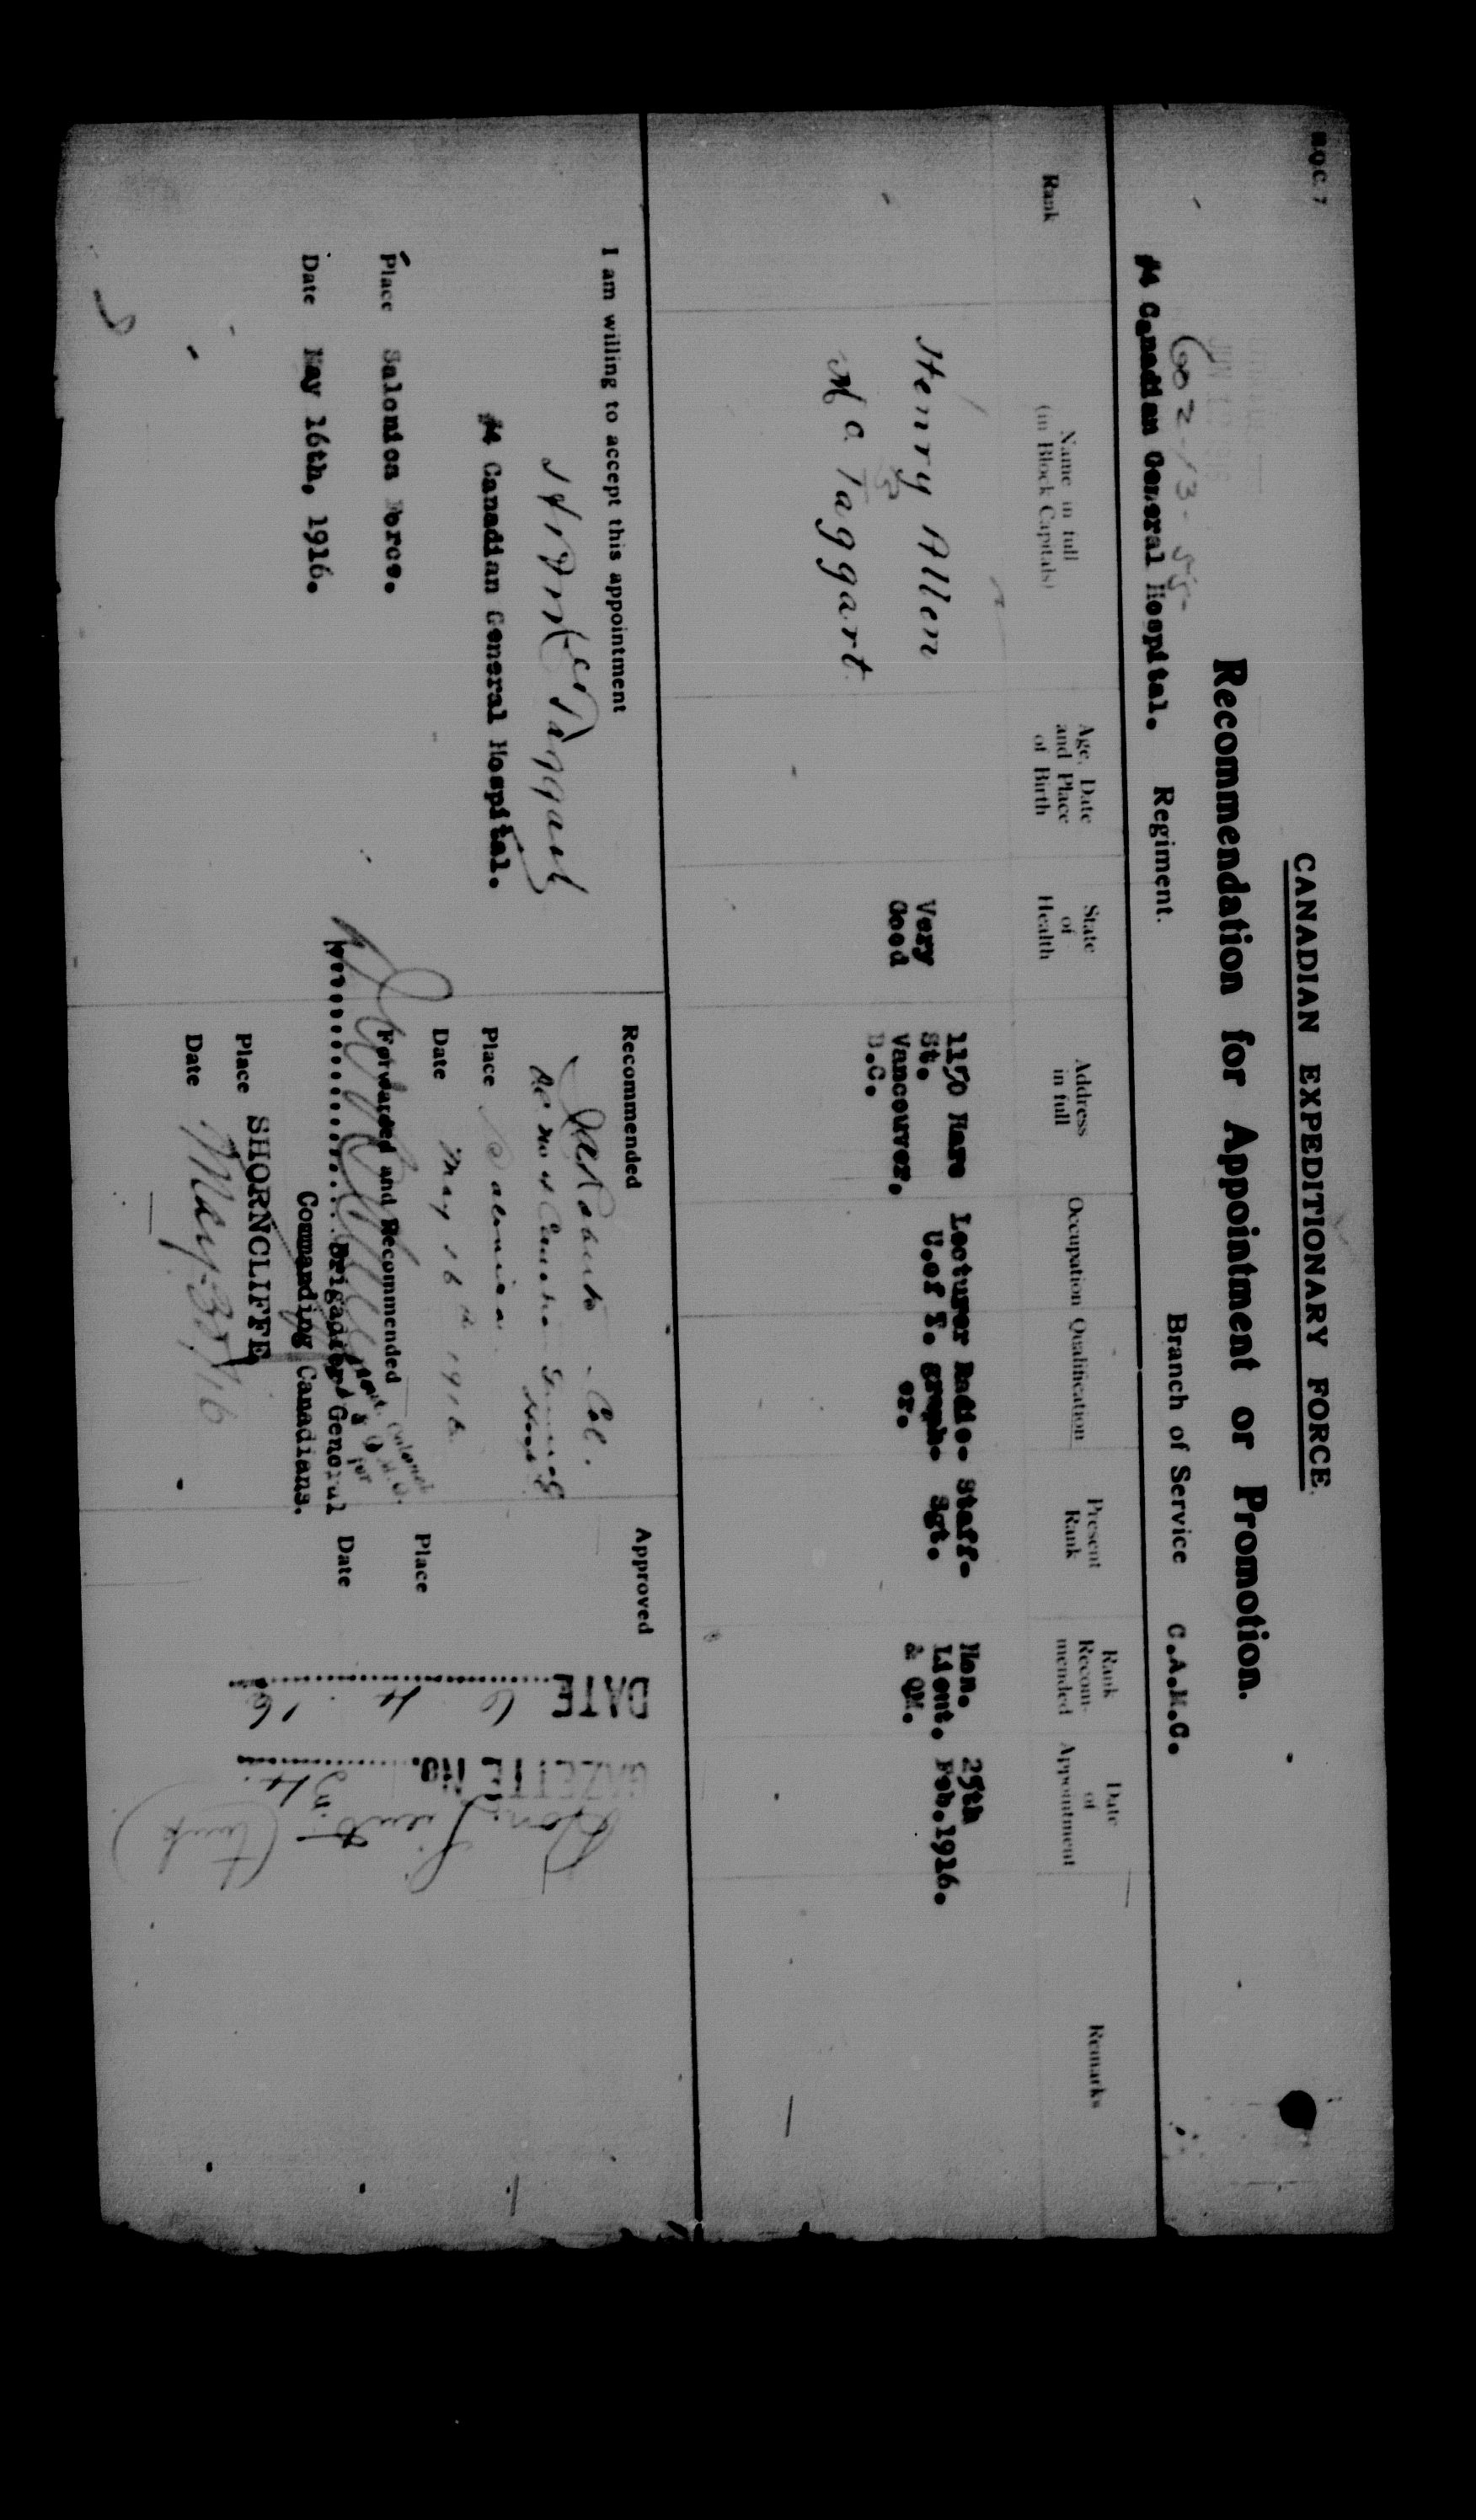 B.O.C. 7
CANADIAN EXPEDITIONARY FORCE.
Recommendation for Appointment or Promotion.
#4 Canadian General Hospital. Regiment. Branch of Service C.A.M.C.
Rank
Name in full
(in Block Capitals)
Age, Date
and Place
of Birth
State
of
Health
Address
in full
Occupation
Qualification
Present
Rank
Rank
Recom-
mended
Date
of
Appointment
Remarks
Henry Allen
McTaggart
Very
Good
1150 Haro
St.
Vancouver.
B.C.
Lecturer
U.of T.
Radio-
graph-
er.
Staff-
Sgt.
Hon.
Lieut.
& QM.
25th
Feb.1916.
I am willing to accept this appointment
H A McTaggart
#4 Canadian General Hospital.
Place Salonica Force.
Date May 16th, 1916.
Recommended
Col.
OC No 4 Canadian General
Place Salonica
Date May 16th 1916.
Forwarded and Recommended
Brigadier General
Commanding Canadians.
Place SHORNCLIFFE
Date May 30/16
Approved
Place
Date
DATE 6 4 16
GAZETTE No.
Hon. Lieut